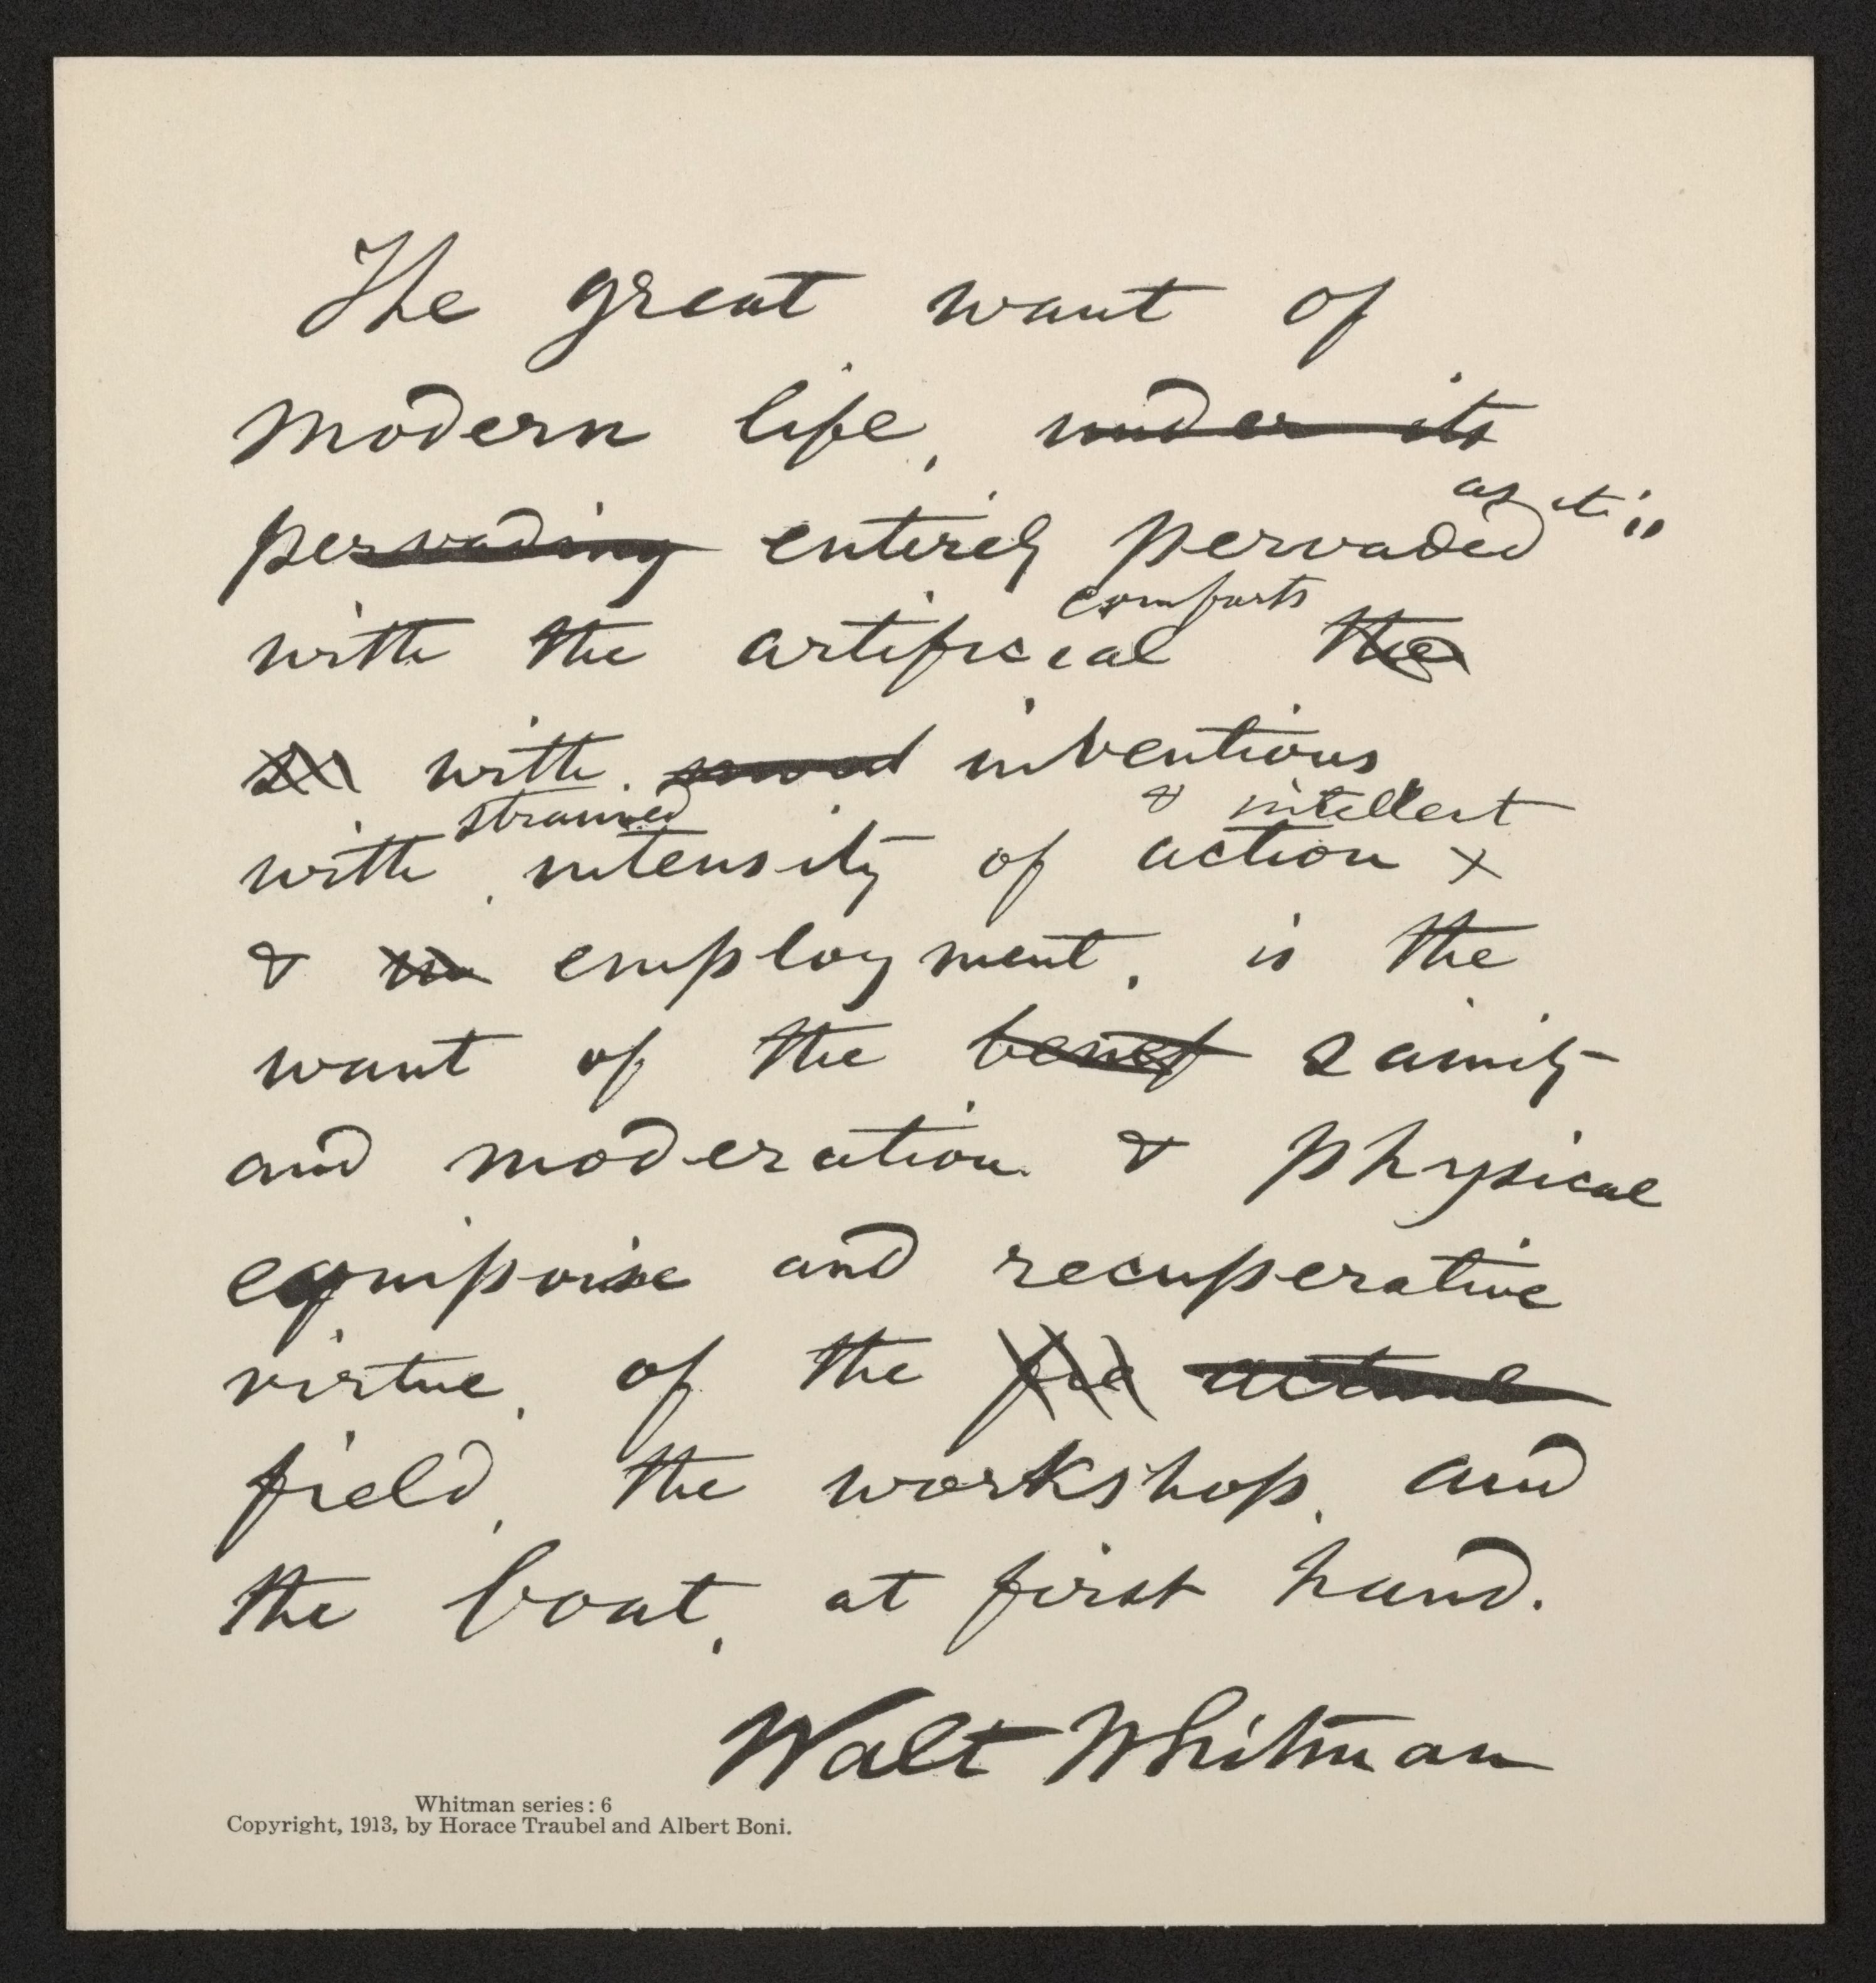 The great want of
modern life, under its
as it is
pervading entirely pervaded
comforts
with the artificial the
with inventions
strained & intellect
with intensity of action x
& employment, is the
want of the benef sanity
and moderation & physical
equipoise and recuperative
virtue, of the fie actual
field, the workshop, and
the boat, at first hand.
Walt Whitman
Whitman series: 6
Copyright, 1913, by Horace Traubel and Albert Boni.